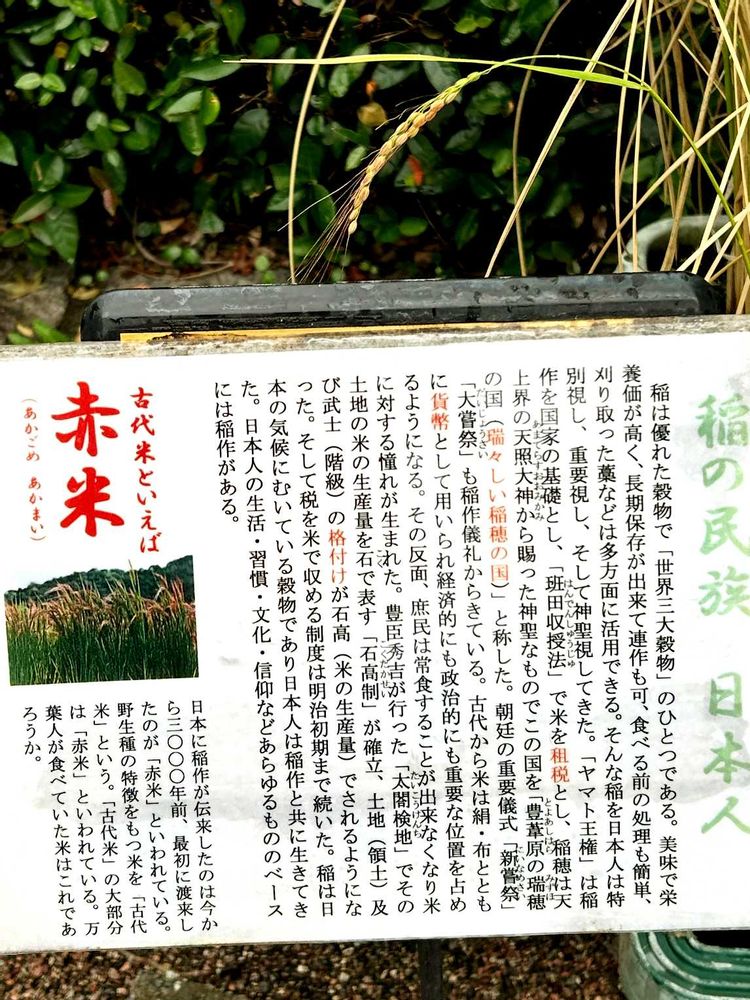 稲の民族 日本人
稲は優れた穀物で「世界三大穀物」のひとつである。美味で栄
養価が高く、長期保存が出来て連作も可、食べる前の処理も簡単、
刈り取った藁などは多方面に活用できる。そんな稲を日本人は特
別視し、重要視し、そして神聖視してきた。「ヤマト王権」は稲
作を国家の基礎とし、「班田収授法」で米を租税とし、稲穂は天
はんでんしゅうじゅ
上界の天照大神から賜った神聖なものでこの国を「豊葦原の瑞穂
あまてらすおおみかみ
とよあしはら みずほ
の国（瑞々しい稲穂の国）」と称した。朝廷の重要儀式「新嘗祭」
にいなめさい
「大嘗祭」も稲作儀礼からきている。古代から米は絹・布ととも
だいじょうさい
に貨幣として用いられ経済的にも政治的にも重要な位置を占め
るようになる。その反面、庶民は常食することが出来なくなり米
に対する憧れが生まれた。豊臣秀吉が行った「太閤検地」でその
たいこうけんち
土地の米の生産量を石で表す「石高制」が確立、土地（領土）及
こくだかせい
び武士（階級）の格付けが石高（米の生産量）でされるようにな
った。そして税を米で収める制度は明治初期まで続いた。稲は日
本の気候にむいている穀物であり日本人は稲作と共に生きてき
た。日本人の生活・習慣・文化・信仰などあらゆるもののベース
には稲作がある。
古代米といえば
赤米
（あかごめ あかまい）
日本に稲作が伝来したのは今か
ら三〇〇〇年前、最初に渡来し
たのが「赤米」といわれている。
野生種の特徴をもつ米を「古代
米」という。「古代米」の大部分
は「赤米」といわれている。万
葉人が食べていた米はこれであ
ろうか。